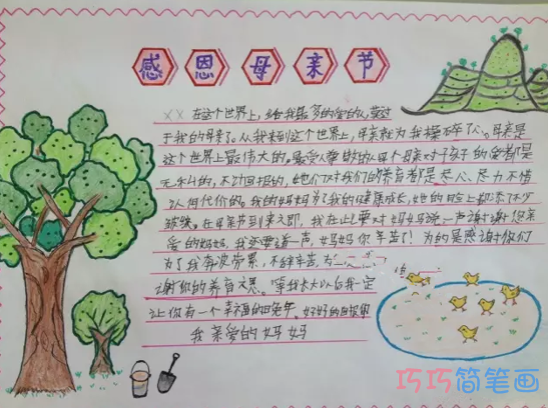 感恩母亲节
XX 在这个世界上，给我最多的爱的人，莫过
于我的母亲了。从我来到这个世界上，母亲就为我操碎了心。母亲是
这个世界上最伟大的。最受人尊敬的。每个母亲对子孩子的爱都是
无私的，不求回报的，她们对我们的养育都是尽心、尽力不惜
任何代价的。我的妈妈为了我的健康成长，她的脸上都添了不少
皱纹。在母亲节到来之即，我在此要对妈妈说一声谢谢您亲
爱的妈妈，我还要道一声，妈妈你辛苦了！为的是感谢你们
为了我奔波劳累，不辞辛苦，为
谢你的养育之恩。等我长大以后我一定
让你有一个幸福的晚年。好好的回报
我亲爱的妈妈
巧巧简笔画